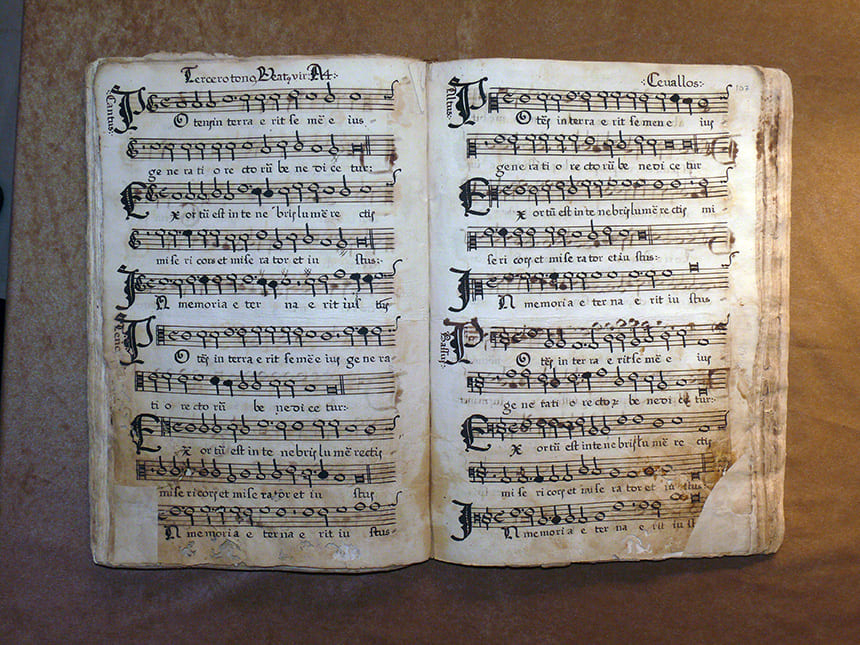 Tercero tonꝯ Beatꝯ vir: A4:·
Cantus:
P O tens in terra e rit se mē e ius-
ge ne ra ti o re cto rū be ne di ce tur:·
E X ortū est in te ne bris lu mē re ctis
mi se ri cors et mi se ra tor et iu stus:·
I N memoria e ter na e rit ius tus
Tenor
P O tēs in terra e rit se mē e ius ge ne ra-
ti o re cto rū be ne di ce tur:·
E X ortū est in te ne bris lu mē rectis
mi se ri cors et mi se ra tor et iu stus
I N memoria e ter na e rit iu stus-
:Ceuallos:·
107
Altus:
P O tēs in terra e rit se men e ius
ge ne ra ti o re cto rū be ne di ce tur
E X ortū est in te ne bris lu mē rectis mi
se ri cors et mi se ra tor et iu stus:
I N memoria e ter na e rit iu stus-
Bassus:
P O tēs in terra e rit se mē e ius
ge ne rati o re cto be ne di ce tur:·
E X ortū est in te ne bris lu mē re ctis
mi se ri cors et mi se ra tor et iu stus:
I N memoria e ter na e rit iu